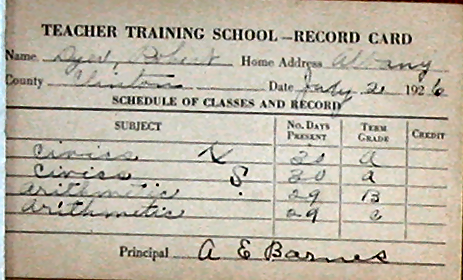 TEACHER TRAINING SCHOOL—RECORD CARD
Name Dyer, Robert Home Address Albany
County Clinton Date July 2 1926
SCHEDULE OF CLASSES AND RECORD
SUBJECT No. Days Present Term Grade Credit
Civics K 30 A
Civics S. 30 A
Arithmetic 29 B
Arithmetic 29 C
Principal A E Barnes